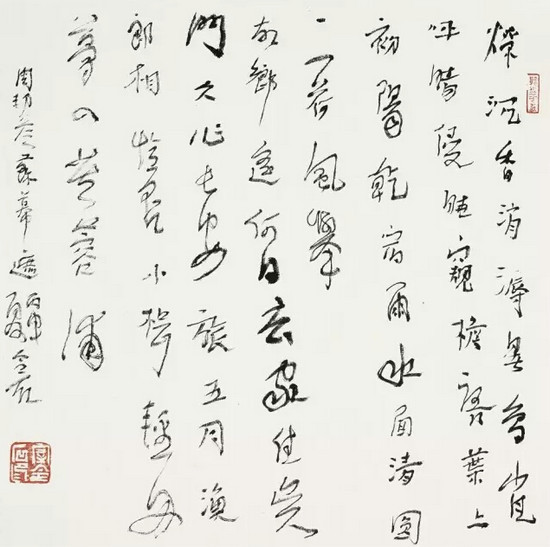 燎沉香消溽暑鳥雀
呼晴侵曉窺檐語葉上
初陽乾宿雨水面清圓
一一荷風舉
故鄉遥何日去家住吴
門久作长安旅五月漁
郎相憶否小楫輕舟
夢入芙蓉浦
周邦彦蘇幕遮
丙申夏